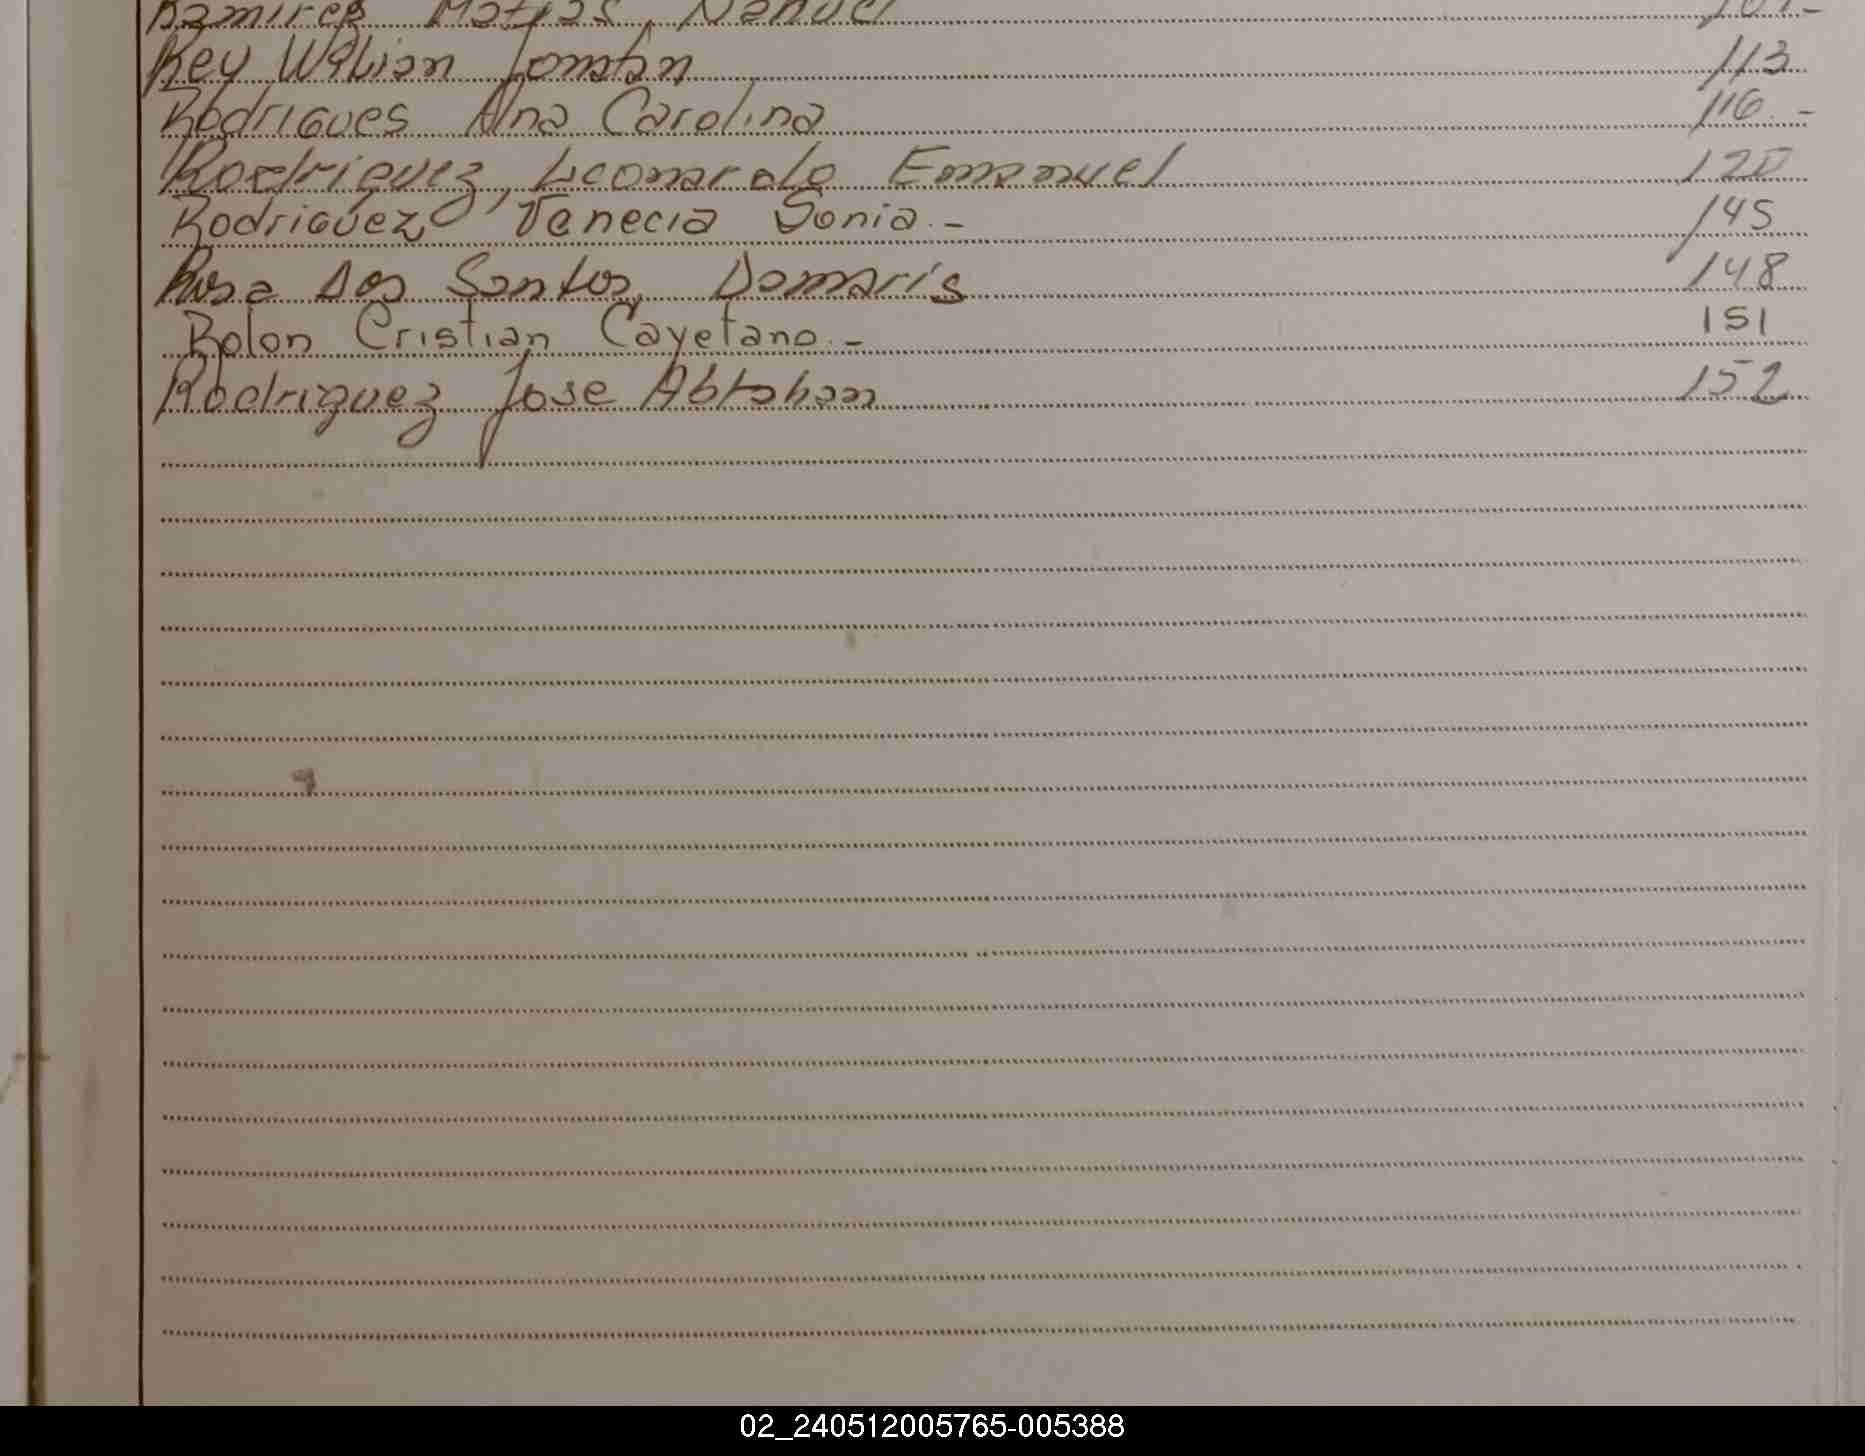 Ramirez Matias, Nahuel 101.-
Rey Walian Jonatan 113
Rodrigues Ana Carolina 116.-
Rodriguez, Leonardo Emanuel 120
Rodriguez Venecia Sonia.- 145
Rosa Dos Santos, Damaris 148
Rolon Cristian Cayetano.- 151
Rodriguez Jose Abraham 152
02_240512005765-005388